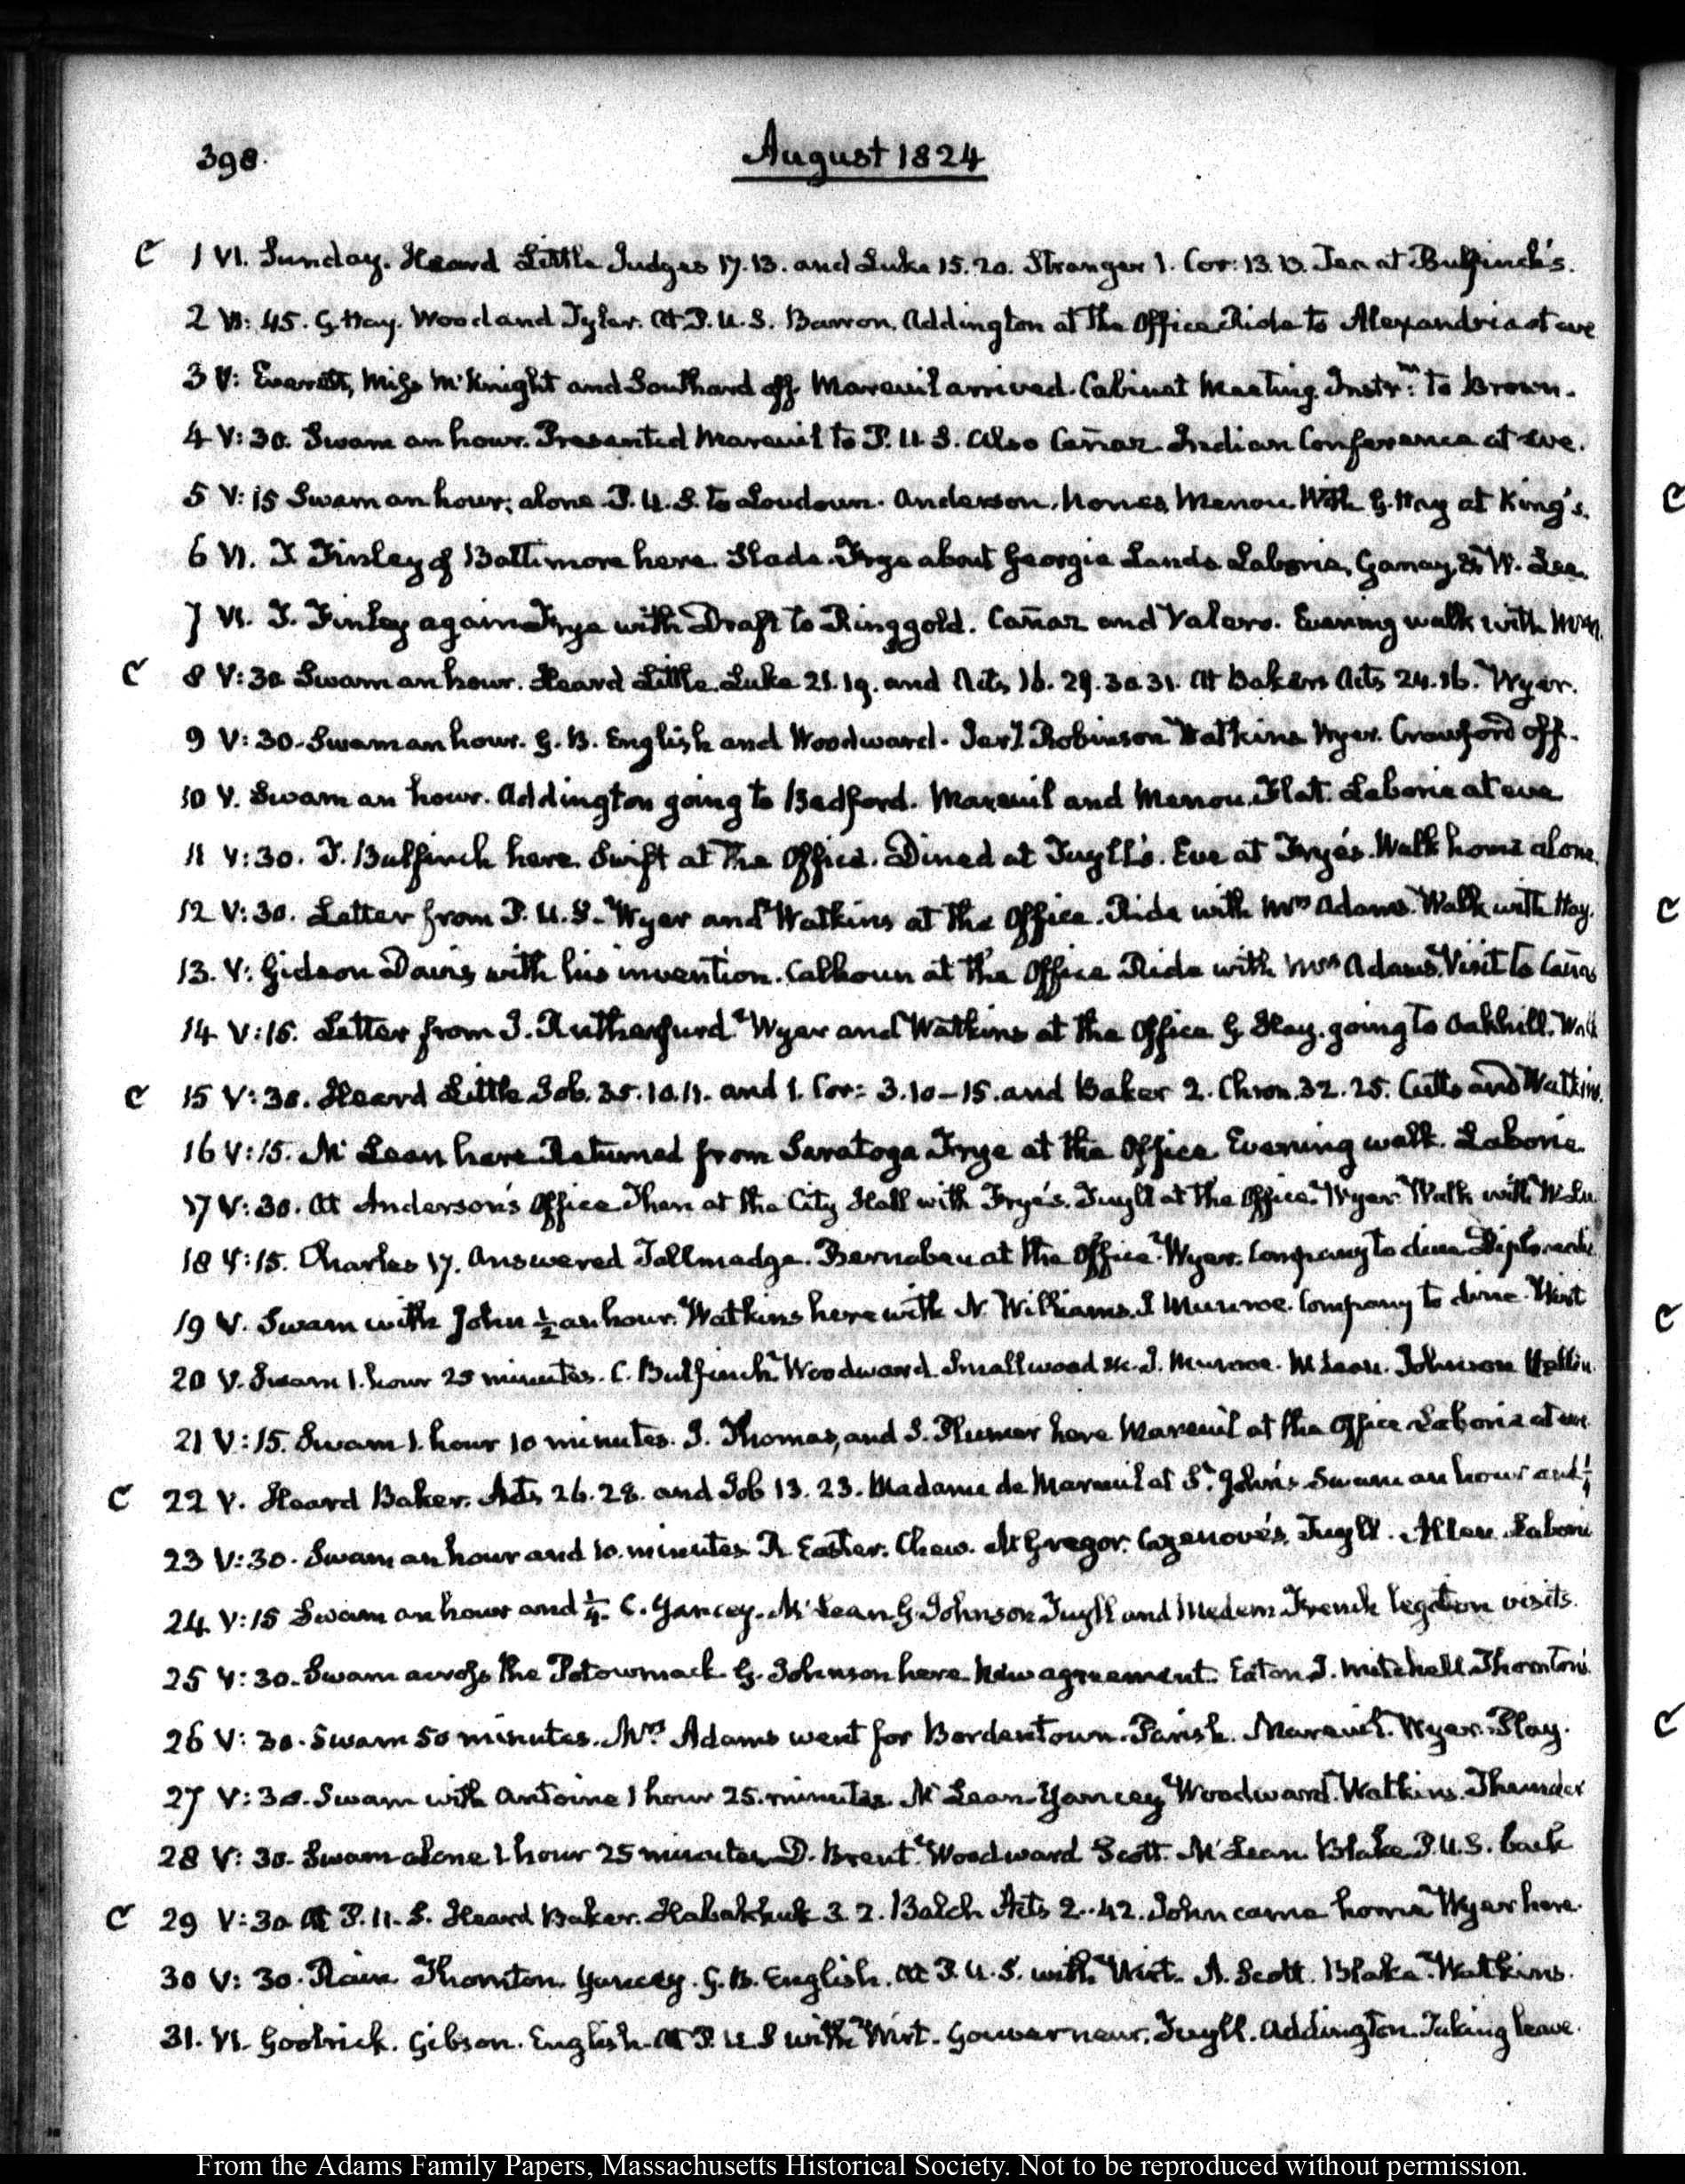 398.
August 1824
C 1 VI. Sunday. Heard Little Judges 17.13. and Luke 15.20. Stranger 1. Cor: 13.13. Tea at Bulfinch's.
2 VI: 45. G. Hay. Wood and Tyler. At P.U.S. Barron. Addington at the Office Ride to Alexandria at eve
3 V: Everett, Miss McKnight and Southard off. Mareuil arrived. Cabinet Meeting. Instrns: to Brown.
4 V: 30. Swam an hour. Presented Mareuil to P.U.S. also Cañaz. Indian Conference at Eve.
5 V: 15 Swam an hour; alone. P.U.S. to Loudoun. Anderson. Nones, Menou. With G. Hay at King's.
6 VI. J. Finley of Baltimore here. Slade. Frye about Georgia Lands Laborie, Ganay, & W. Lee.
7 VI. J. Finley again Frye with Draft to Ringgold. Cañaz and Valero. Evening walk with
C 8 V: 30 Swam an hour. Heard Little. Luke 21.19. and Acts 16. 29. 30 31. At Bakers Acts 24.16. Wyer.
9 V: 30. Swam an hour. G. B. English and Woodward. Robinson Watkins Wyer. Crawford off.
10 V. Swam an hour. Addington going to Bedford. Mareuil and Menou. Laborie at eve
11 V: 30. T. Bulfinch here. Swift at the Office. Dined at Tuyll's. Eve at Frye's. Walk home alone.
12 V: 30. Letter from P.U.S. Wyer and Watkins at the Office. Ride with Mrs Adams. Walk with Hay.
13. V: Gideon Davis with his invention. Calhoun at the Office Ride with Mrs Adams. Visit to
14 V: 15. Letter from J. Rutherfurd. Wyer and Watkins at the Office G. Hay. going to Oakhill.
C 15 V: 30. Heard Little Job. 35.10.11. and 1. Cor: 3.10-15. and Baker 2. Chron. 32. 25. Cutts and Watkins.
16 V: 15. McLean here Returned from Saratoga Frye at the Office Evening walk. Laborie.
17 V: 30. At Anderson's Office Then at the City Hall with Frye's. Tuyll at the Office. Wyer. Walk with
18 V: 15. Charles 17. Answered Tallmadge. Bernabeu at the Office. Wyer. Company to dine
19 V. Swam with John ½ an hour. Watkins here with N. Williams. J. Munroe. Company to dine. Wirt
20 V. Swam 1. hour 25 minutes. C. Bulfinch Woodward. Smallwood &c. J. Munroe. McLean. Johnson
21 V: 15. Swam 1. hour 10 minutes. J. Thomas, and S. Plumer here Mareuil at the Office Laborie at eve
C 22 V. Heard Baker. Acts 26. 28. and Job 13. 23. Madame de Mareuil at St. John's. Swam an hour and ¼
23 V: 30. Swam an hour and 10. minutes R. Easter. Chew. McGregor. Cazenove's. Tuyll. Allen. Laborie
24 V: 15 Swam an hour and ¼. C. Yancey. McLean. G. Johnson Tuyll and Medem French legation visits.
25 V: 30. Swam across the Potowmack G. Johnson here. New agreement. Eaton J. Mitchell. Thornton's
26 V: 30. Swam 50 minutes. Mrs Adams went for Bordentown. Parish. Mareuil. Wyer. Play.
27 V: 30. Swam with Antoine 1 hour 25. minutes. McLean. Yancey Woodward. Watkins. Thunder
28 V: 30. Swam alone 1 hour 25 minutes D. Brent. Woodward Scott. McLean Blake P.U.S. back
C 29 V: 30 At P.U.S. Heard Baker. Habakkuk 3. 2. Balch Acts 2. 42. John came home Wyer here.
30 V: 30. Rain Thornton. Yancey. G. B. English. At P.U.S. with Wirt. A. Scott. Blake. Watkins.
31. VI. Goolrick. Gibson. English. At P.U.S with Wirt. Gouverneur. Tuyll. Addington. Taking leave.
From the Adams Family Papers, Massachusetts Historical Society. Not to be reproduced without permission.